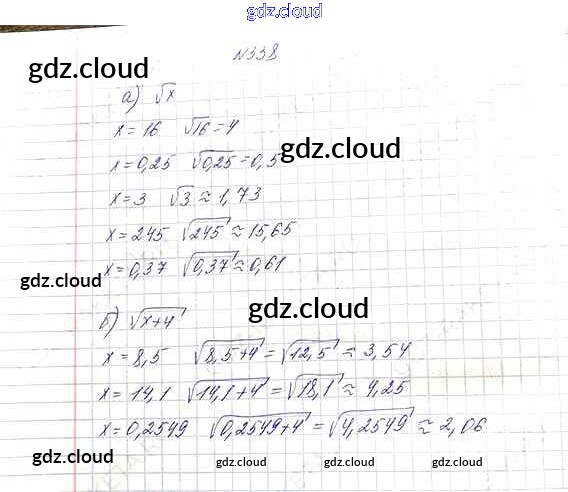 gdz.cloud
№338
gdz.cloud
а) √x
x=16 √16=4
gdz.cloud
x=0,25 √0,25=0,5
x=3 √3≈1,73
x=245 √245≈15,65
x=0,37 √0,37≈0,61
gdz.cloud
gdz.cloud
б) √x+4
x=8,5 √8,5+4=√12,5≈3,54
x=14,1 √14,1+4=√18,1≈4,25
x=0,2549 √0,2549+4=√4,2549≈2,06
gdz.cloud gdz.cloud gdz.cloud